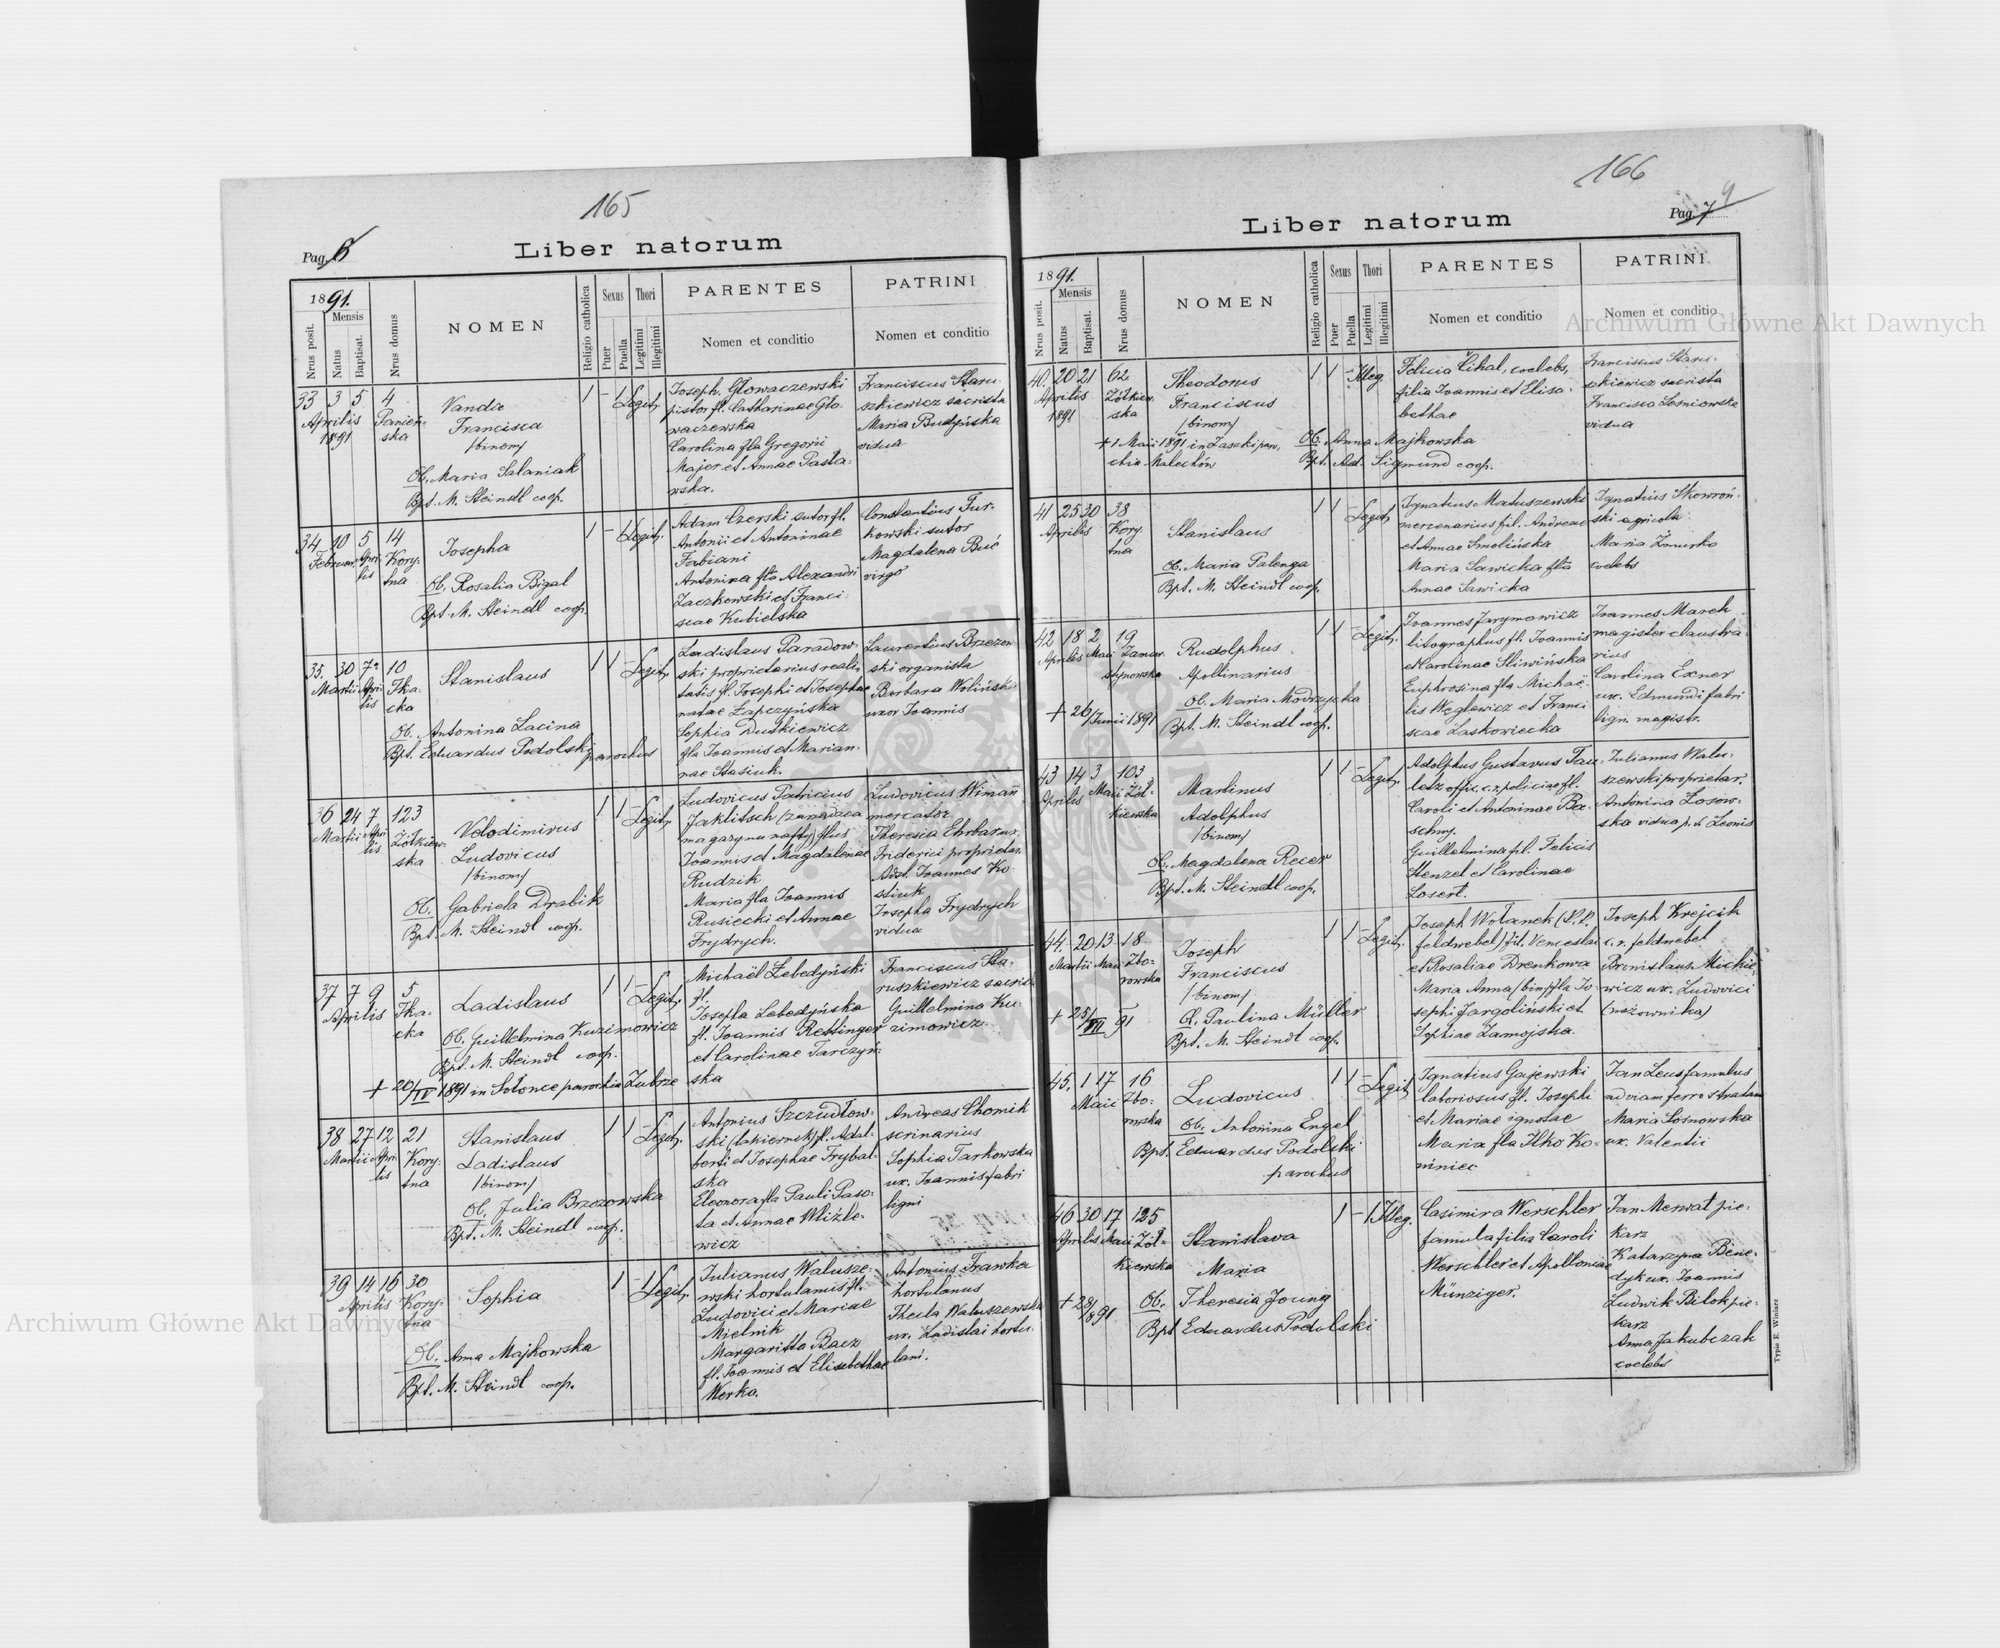 165
Pag. 6
Liber natorum
1891.
Nrus posit.
Mensis
Natus
Baptisat.
Nrus domus
NOMEN
Religio catholica
Sexus
Puer
Puella
Thori
Legitimi
Illegitimi
PARENTES
Nomen et conditio
PATRINI
Nomen et conditio
33 3 5 4
Aprilis
1891
Panień-
ska
Vanda
Francisca
/binom/
Ob. Maria Salaniak
Bpt. M. Steindl coop.
1 - 1 Legit.
Joseph. Głowaczewski
pistor fl. Catharinae Gło-
waczewska
Carolina fla Gregorii
Majer et Annae Pasła-
wska.
Franciscus Staru-
szkiewicz sacrista
Maria Budyńska
vidua
34 10 5 14
Februar. Apri-
lis
Kory-
tna
Josepha
Ob. Rosalia Bigal
Bpt. M. Steindl coop.
1 - 1 Legit.
Adam Czerski sutor fl.
Antonii et Antoninae
Fabiani
Antonina fla Alexandri
Zaczkowski et Franci-
scae Kubielska
Constantius Tur-
kowski sutor
Magdalena Buć
virgo
35. 30 7 10
Martii Apri-
lis
Tka-
cka
Stanislaus
Ob. Antonina Lacina
Bpt. Eduardus Podolski parochus
1 1 - Legit.
Ladislaus Paradow-
ski proprietarius reali-
tatis fl. Josephi et Josephae
natae Łapczyńska
Sophia Dutkiewicz
fla Joannis et Marian-
nae Stasiuk.
Laurentius Brzezow-
ski organista
Barbara Wolińska
uxor Joannis
36 24 7 123
Martii Apri-
lis
Żółkiew-
ska
Volodimirus
Ludovicus
/binom/
Ob. Gabriela Drabik
Bpt. M. Steindl coop.
1 1 - Legit.
Ludovicus Patricius
Jaklitsch (zarządca
magazynu nafty) flius
Joannis et Magdalenae
Rudzik
Maria fla Joannis
Rusiecki et Annae
Frydrych.
Ludovicus Wimann
mercator
Theresia Ehrbar ux.
Friderici proprietar.
Adst. Joannes Ko-
stiuk
Josepha Frydrych
vidua
37 7 9 5
Aprilis
Tka-
cka
Ladislaus
Ob. Guilhelmina Kuzimowicz
Bpt. M. Steindl coop.
+ 20/IV 1891 in Sołonce parochia Zubrze
1 1 - Legit.
Michaël Łebedyński
fl.
Josepha Lebedyńska
fl. Joannis Rettinger
et Carolinae Tarczyń-
ska
Franciscus Sta-
ruszkiewicz sacrist.
Guilhelmina Ku-
zimowicz
38 27 12 21
Martii Apri-
lis
Kory-
tna
Stanislaus
Ladislaus
/binom/
Ob. Julia Brzozowska
Bpt. M. Steindl coop.
1 1 - Legit.
Antonius Szczudłow-
ski (lakiernik) fl. Adal-
berti et Josephae Trybal-
ska
Eleonora fla Pauli Paso-
ta et Annae Wliźle-
wicz
Andreas Chomik
scrinarius
Sophia Tarkowska
ux. Joannis fabri
ligni
39 14 16 30
Aprilis
Kory-
tna
Sophia
Ob. Anna Majkowska
Bpt. M. Steindl coop.
1 - 1 Legit.
Julianus Walusze-
wski hortulanus fl.
Ludovici et Mariae
Mielnik
Margaritta Bacz
fl. Joannis et Elisabethae
Werka.
Antonius Trawka
hortulanus
Thecla Waluszewska
ux. Ladislai hortu-
lani.
166
Pag. 7 9
Liber natorum
1891.
Nrus posit.
Mensis
Natus
Baptisat.
Nrus domus
NOMEN
Religio catholica
Sexus
Puer
Puella
Thori
Legitimi
Illegitimi
PARENTES
Nomen et conditio
PATRINI.
Nomen et conditio
40. 20 21 62
Aprilis
1891
Żółkiew-
ska
Theodorus
Franciscus
/binom/
+ 1 Maii 1891 in Zaszki par.
Malechów
Ob. Anna Majkowska
Bpt. Ad. Sigmund coop.
1 1 - Illeg.
Felicia Cihal, coelebs,
filia Joannis et Elisa-
bethae
Franciscus Staru-
szkiewicz sacrista
Francisca Leśniowska
vidua
41 25 30 38
Aprilis
Kory-
tna
Stanislaus
Ob. Maria Palenga
Bpt. M. Steindl coop.
1 1 - Legit.
Ignatius Matuszewski
mercenarius fil. Andreae
et Annae Smolińska
Maria Sawicka fla
Annae Sawicka
Ignatius Skowroń-
ski agricola
Maria Żmurko
coelebs
42 18 2 19
Aprilis Maii
Zamar-
stynowska
Rudolphus
Apollinarius
Ob. Maria Modrzycka
Bpt. M. Steindl coop.
+ 26/Junii 1891
1 1 - Legit.
Joannes Jarymowicz
litographus fl. Joannis
et Carolinae Sliwińska
Euphrosina fla Michaë-
lis Węglewicz et Franci-
scae Laskowiecka
Joannes March
magister claustra-
rius
Carolina Exner
ux. Edmundi fabri
lign. magistr.
43 14 3 103
Aprilis Maii
Żół-
kiewska
Martinus
Adolphus
/binom/
Ob. Magdalena Recer
Bpt. M. Steindl coop.
1 1 - Legit.
Adolphus Gustavus Tau-
letz offic. c.r. policiae fl.
Caroli et Antoninae Ba-
schny.
Guilhelmina fl. Felicis
Stenzel et Carolinae
Losert.
Julianus Walu-
szewski proprietar.
Antonina Losow-
ska vidua p. d. Leonis
44. 20 13 18
Martii Maii
Zbo-
rowska
Joseph
Franciscus
/binom/
Ob. Paulina Müller
Bpt. M. Steindl coop.
+ 25/VII 91
1 1 - Legit.
Joseph Wołanek (k.k.
feldwebel) fil. Venceslai
et Rosaliae Drenkowa
Maria Anna /bin/ fla Jo-
sephi Jargoliński et
Sophiae Zamojska
Joseph Krejcik
c.r. feldwebel
Bronislaus Mickie-
wicz ux. Ludovici
(nożownika)
45. 1 17 16
Maii
Zbo-
rowska
Ludovicus
Ob. Antonina Engel
Bpt. Eduardus Podolski
parochus
1 1 - Legit.
Ignatius Gajewski
laboriosus fl. Josephi
et Mariae ignotae
Maria fla Ilko Ko-
niniec
Jan Leus famulus
ad viam ferro stratam
Maria Sosnowska
ux. Valentii
46 30 17 125
Aprilis Maii
Żół-
kiewska
Stanislava
Maria
+ 28/891
Ob. Theresia Joung
Bpt Eduardus Podolski
1 - 1 Illeg.
Casimira Werschler
famula filia Caroli
Werschler et Apolloniae
Münziger.
Jan Merwat pie-
karz
Katarzyna Bene-
dyk ux. Joannis
Ludwik Bilok pie-
karz
Anna Jakubczak
coelebs
Typis E. Winiarz
Archiwum Główne Akt Dawnych
Archiwum Główne Akt Dawnych